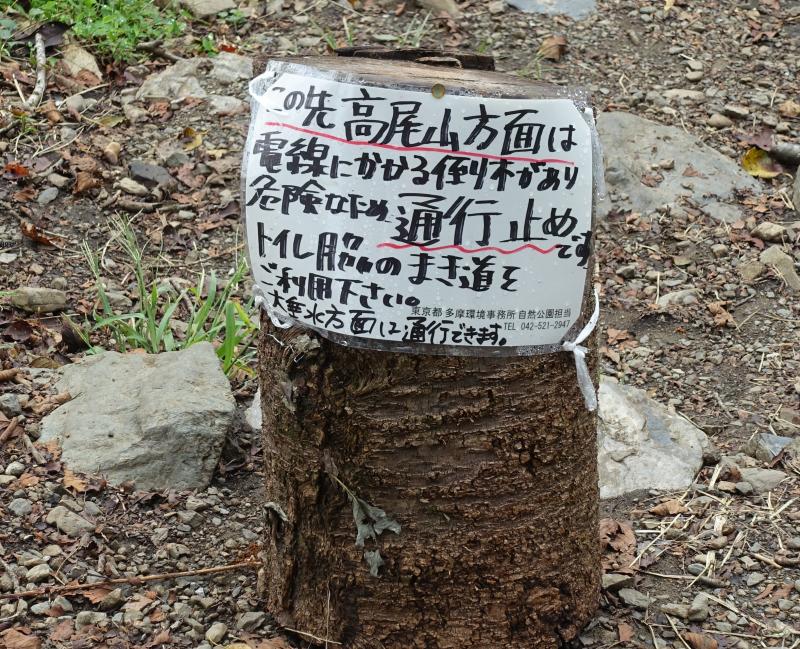 この先 高尾山方面は
電線にかかる倒り木があり
危険なため 通行止めです
トイレ脇のまき道を
ご利用下さい。
東京都 多摩環境事務所 自然公園担当
TEL 042-521-2947
大垂水方面は通行できます。